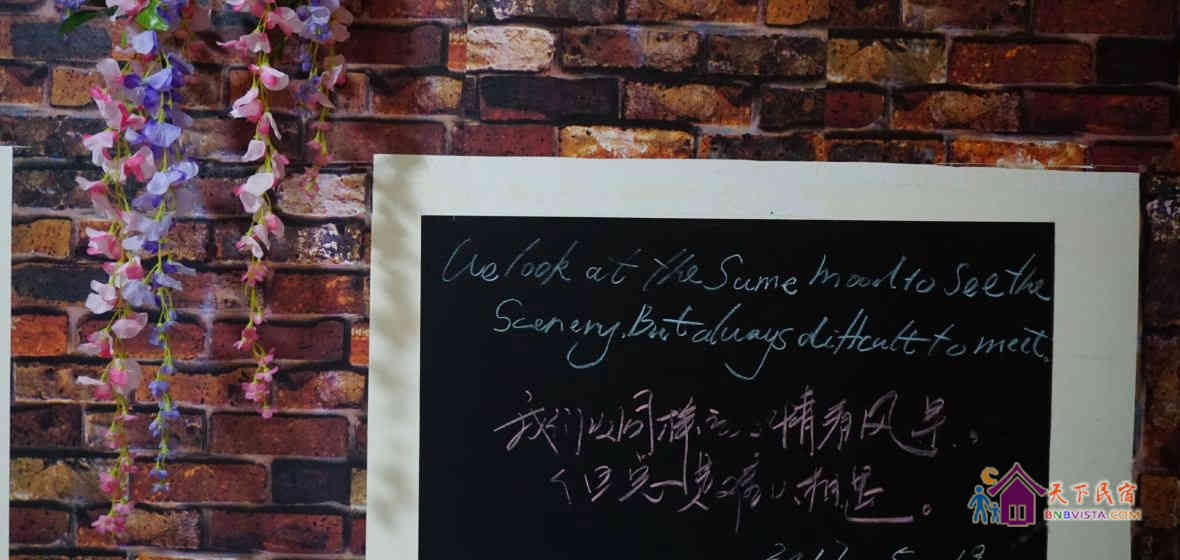 We look at the Same mood to See the
Scenery. But always difficult to meet.
我们以同样心情看风景。
但总觉难以相遇。
天下民宿
BNBVISTA.COM